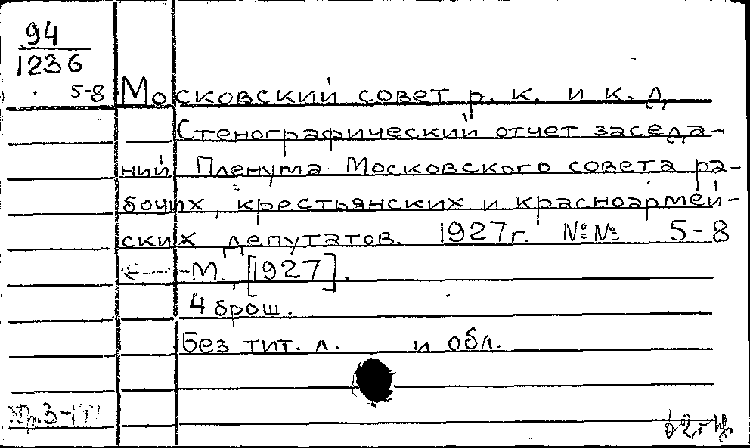 94
1236
5-8
Московский совет р. к. и к. д.
Стенографический отчет заседа-
ний Пленума Московского совета ра-
бочих, крестьянских и красноармей-
ских депутатов. 1927г. №№ 5-8
М. [1927].
4 брош.
Без тит. л. и обл.